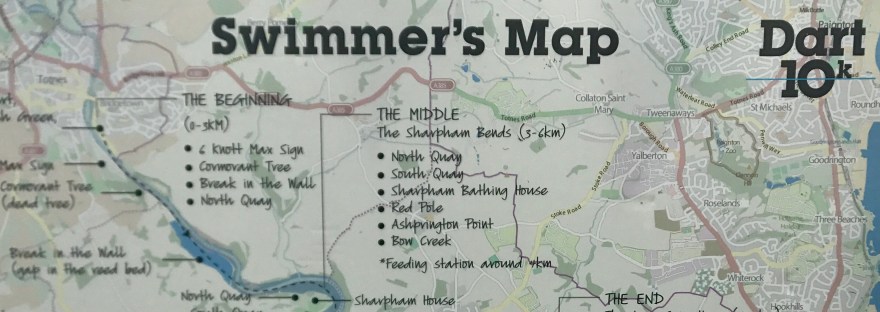 Swimmer's Map
Dart
10k
THE BEGINNING
(0-3KM)
• 6 knott Max Sign
• Cormorant Tree
• Break in the Wall
• North Quay
THE MIDDLE
The Sharpham Bends (3-6km)
• North Quay
• South Quay
• Sharpham Bathing House
• Red Pole
• Ashprington Point
• Bow Creek
*Feeding station around 4km
Green
Max Sign
Cormorant Tree
(dead tree)
Break in the Wall
(gap in the reed bed)
North Quay
Sharpham House
THE END
Totnes
Bridgetown
Collaton Saint
Mary
Tweenaways
St Michaels
Paignton
Yalberton
Goodrington
Roselands
Three Beaches
Whiterock
Hookhills
Roundh
Totnes Road
Totnes Road
Stoke Road
Stoke Road
Waterleat Road
Colley End Road